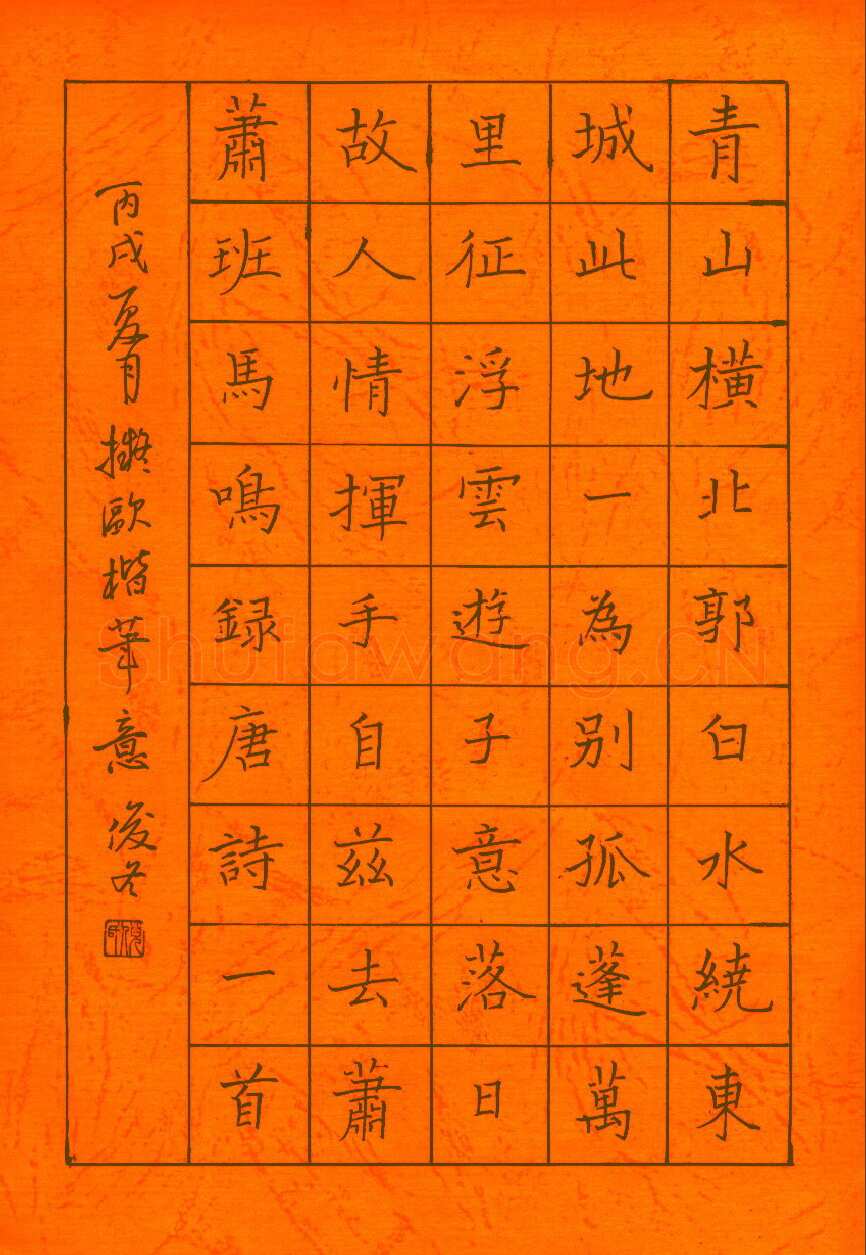 青山橫北郭白水繞東
城此地一為别孤蓬萬
里征浮雲遊子意落日
故人情揮手自兹去蕭
蕭班馬鳴録唐詩一首
丙戌夏月擬歐楷筆意俊冬
Shufawang.CN